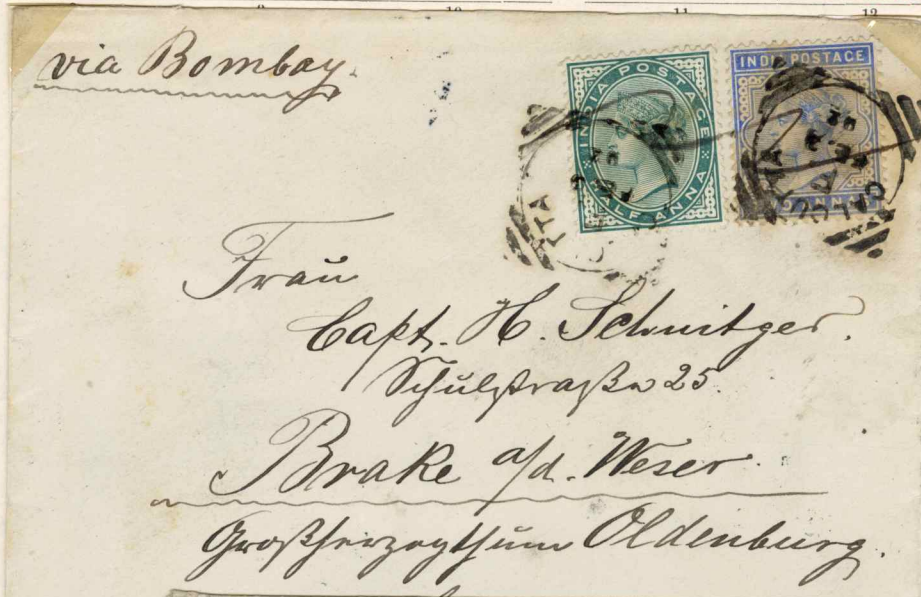 9 10 11 12
via Bombay
INDIA POSTAGE
HALF ANNA
INDIA POSTAGE
TWO ANNAS
Frau
Capt. H. Schnitger.
Schulstraße 25.
Brake a/d. Weser.
Großherzogthum Oldenburg.